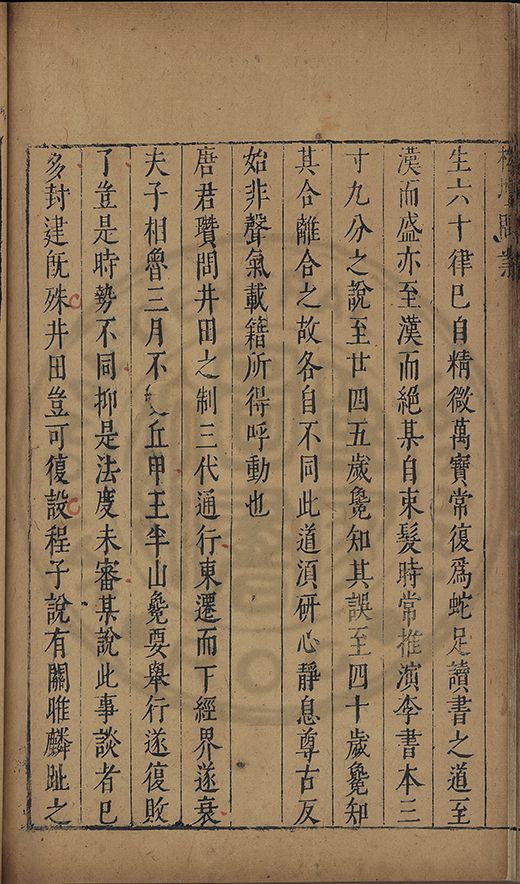 生六十律已自精微萬寶常復為蛇足讀書之道至
漢而盛亦至漢而絕某自束髮時常推演李書本三
寸九分之說至廿四五歲纔知其誤至四十歲纔知
其合離合之故各自不同此道須研心靜息尊古反
始非聲氣載籍所得呼動也
唐君瓚問井田之制三代通行東遷而下經界遂衰
夫子相魯三月不 丘甲王半山纔要舉行遂復敗
了豈是時勢不同抑是法度未審某說此事談者已
多封建旣殊井田豈可復設程子說有關雎麟趾之